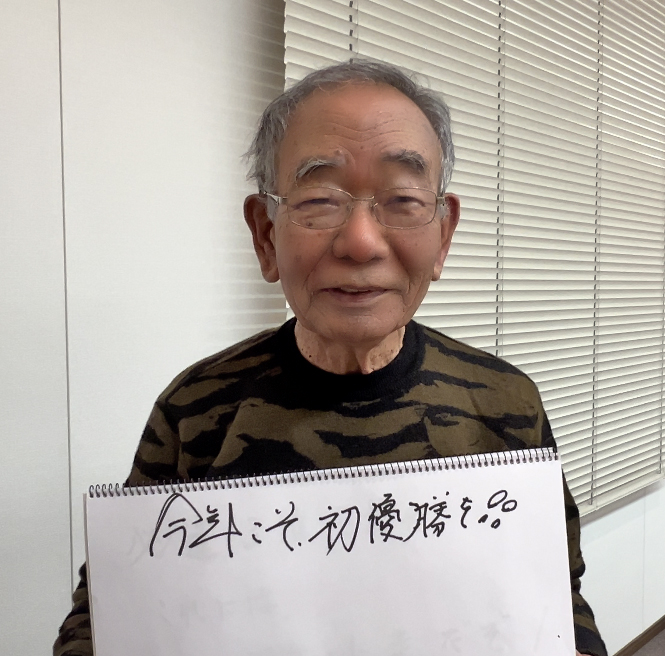 今年こそ、初優勝を!!